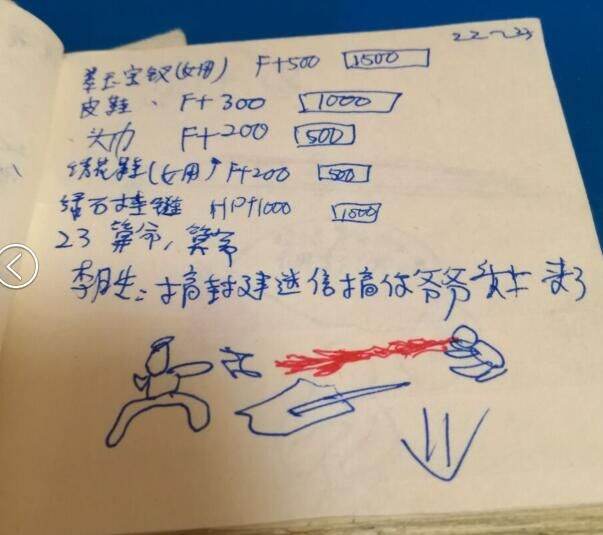 22~23
宝钗(女用) F+500 1500
皮鞋、 F+300 1000
头巾 F+200 500
绣花鞋(女用) F+200 500
石 HP+1000 1500
23 算命,算命
李月生:搞封建迷信搞你爷爷头上来了